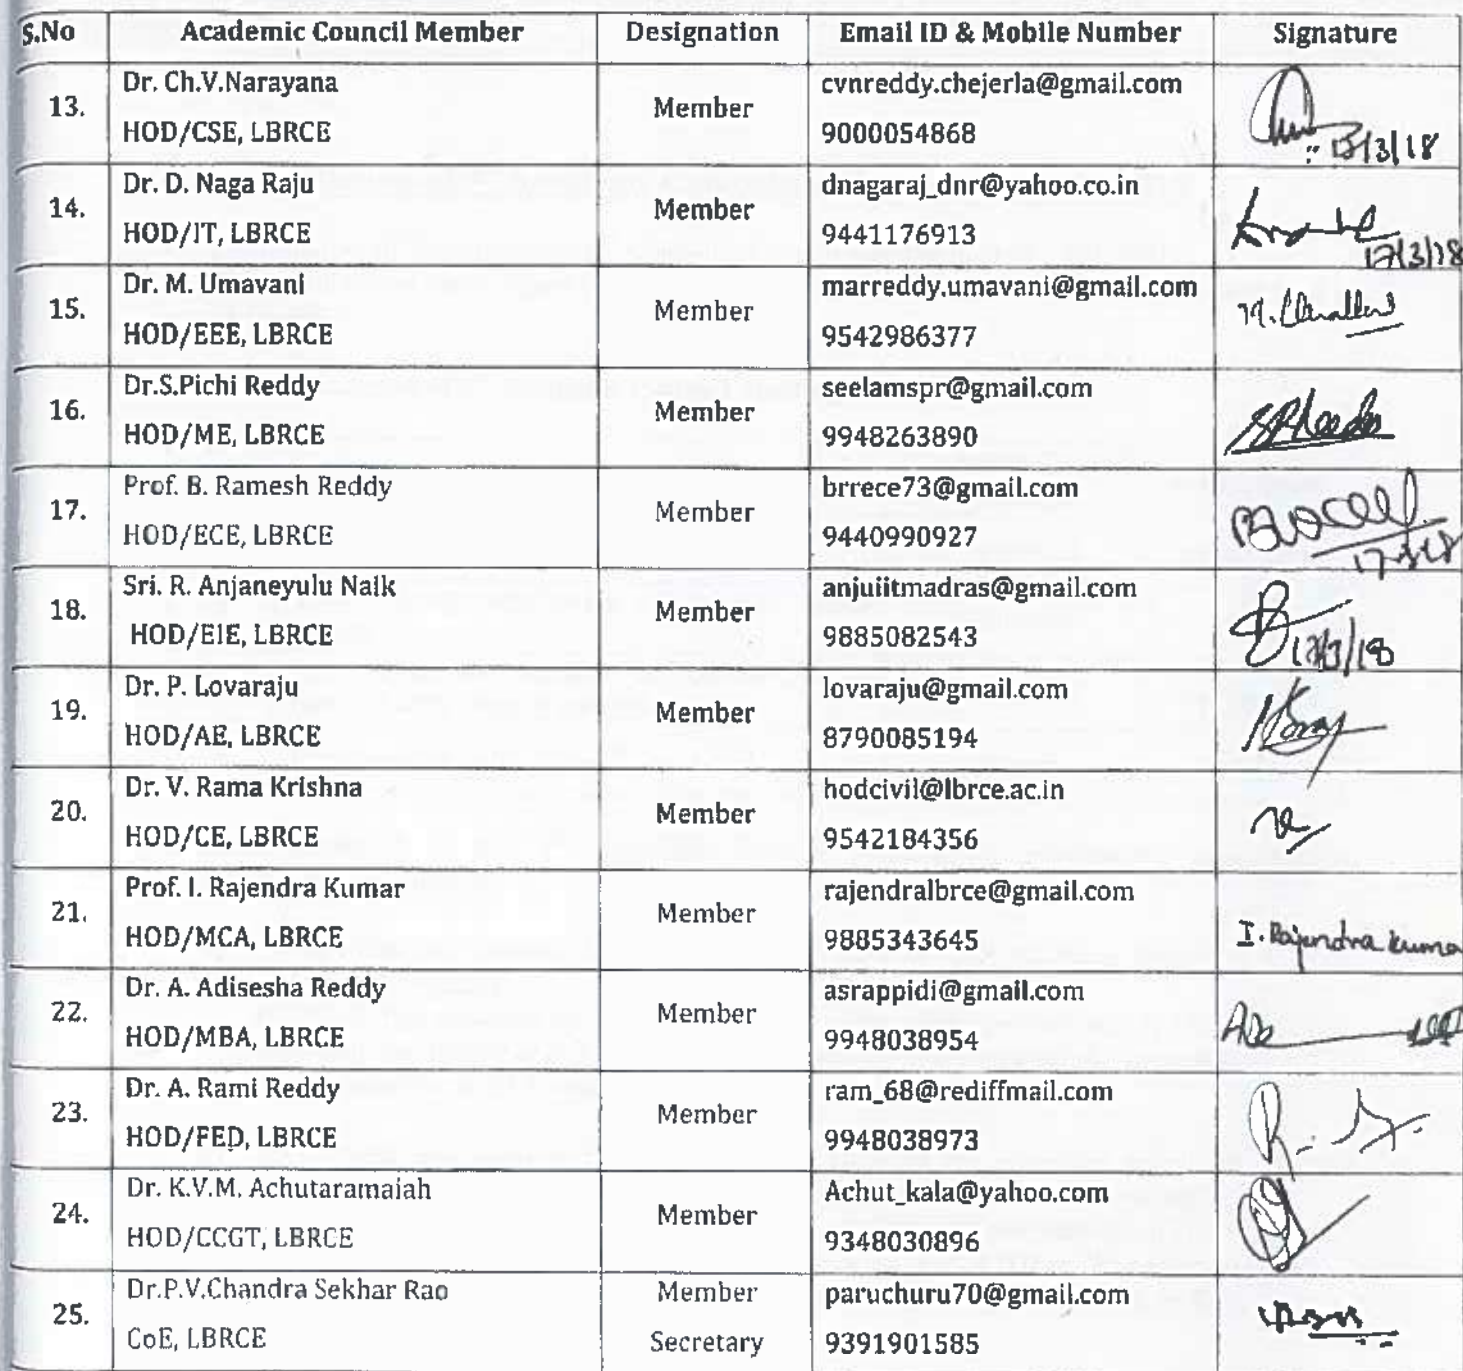 S.No Academic Council Member Designation Email ID & Mobile Number Signature
13. Dr. Ch.V.Narayana
HOD/CSE, LBRCE Member cvnreddy.chejerla@gmail.com
9000054868
14. Dr. D. Naga Raju
HOD/IT, LBRCE Member dnagaraj_dnr@yahoo.co.in
9441176913 17/3/18
15. Dr. M. Umavani
HOD/EEE, LBRCE Member marreddy.umavani@gmail.com
9542986377
16. Dr.S.Pichi Reddy
HOD/ME, LBRCE Member seelamspr@gmail.com
9948263890
17. Prof. B. Ramesh Reddy
HOD/ECE, LBRCE Member brrece73@gmail.com
9440990927
18. Sri. R. Anjaneyulu Naik
HOD/EIE, LBRCE Member anjuiitmadras@gmail.com
9885082543 17/3/18
19. Dr. P. Lovaraju
HOD/AE, LBRCE Member lovaraju@gmail.com
8790085194
20. Dr. V. Rama Krishna
HOD/CE, LBRCE Member hodcivil@lbrce.ac.in
9542184356
21. Prof. I. Rajendra Kumar
HOD/MCA, LBRCE Member rajendralbrce@gmail.com
9885343645 I. Rajendra kuma
22. Dr. A. Adisesha Reddy
HOD/MBA, LBRCE Member asrappidi@gmail.com
9948038954
23. Dr. A. Rami Reddy
HOD/FED, LBRCE Member ram_68@rediffmail.com
9948038973
24. Dr. K.V.M. Achutaramaiah
HOD/CCGT, LBRCE Member Achut_kala@yahoo.com
9348030896
25. Dr.P.V.Chandra Sekhar Rao
CoE, LBRCE Member
Secretary paruchuru70@gmail.com
9391901585